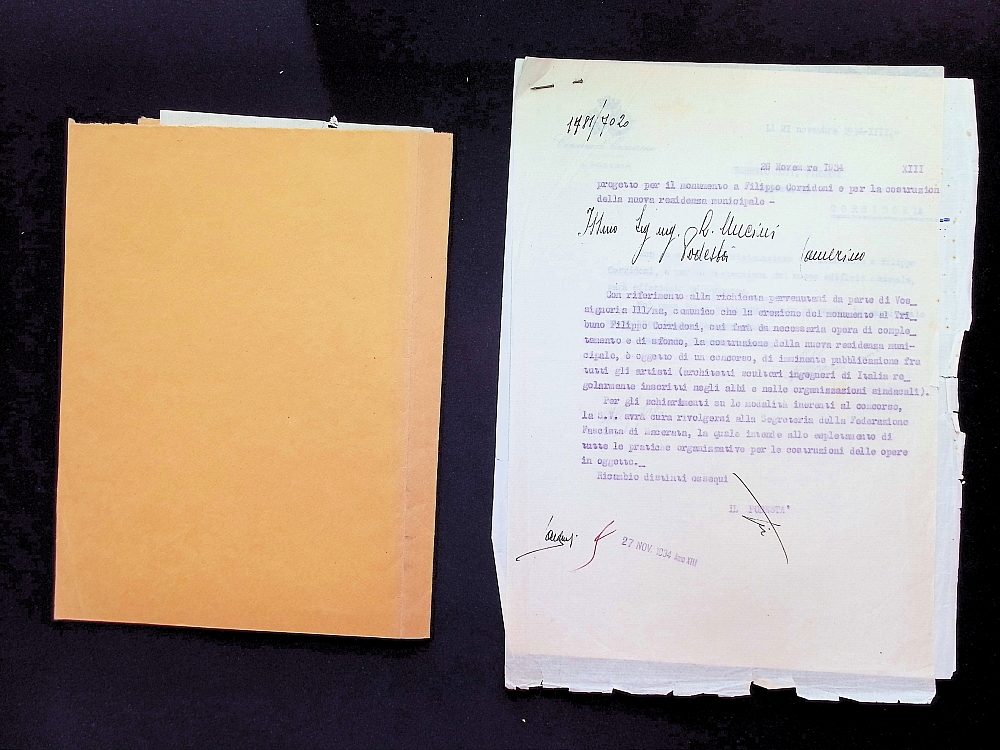 1781/7020
26 Novembre 1934 XIII
progetto per il monumento a Filippo Corridoni e per la costruzion
della nuova residenza municipale -
Ill/mo Sig ing.
Podestà Camerino
Con riferimento alla richiesta pervenutami da parte di Vos_
signoria Ill/ma, comunico che la erezione del monumento al Tri_
buno Filippo Corridoni, cui farà da necessaria opera di comple_
tamento e di sfondo, la costruzione della nuova residenza muni-
cipale, è oggetto di un concorso, di imminente pubblicazione fra
tutti gli artisti (architetti scultori ingegneri di Italia re_
golarmente inscritti negli albi e nelle organizzazioni sindacali).
Per gli schiarimenti su le modalità inerenti al concorso,
la S.V. avrà cura rivolgersi alla Segreteria della Federazione
Fascista di Macerata, la quale intende allo espletamento di
tutte le pratiche organizzative per le costruzioni delle opere
in oggetto._
Ricambio distinti ossequi
IL PODESTA'
27 NOV. 1934 Anno XIII